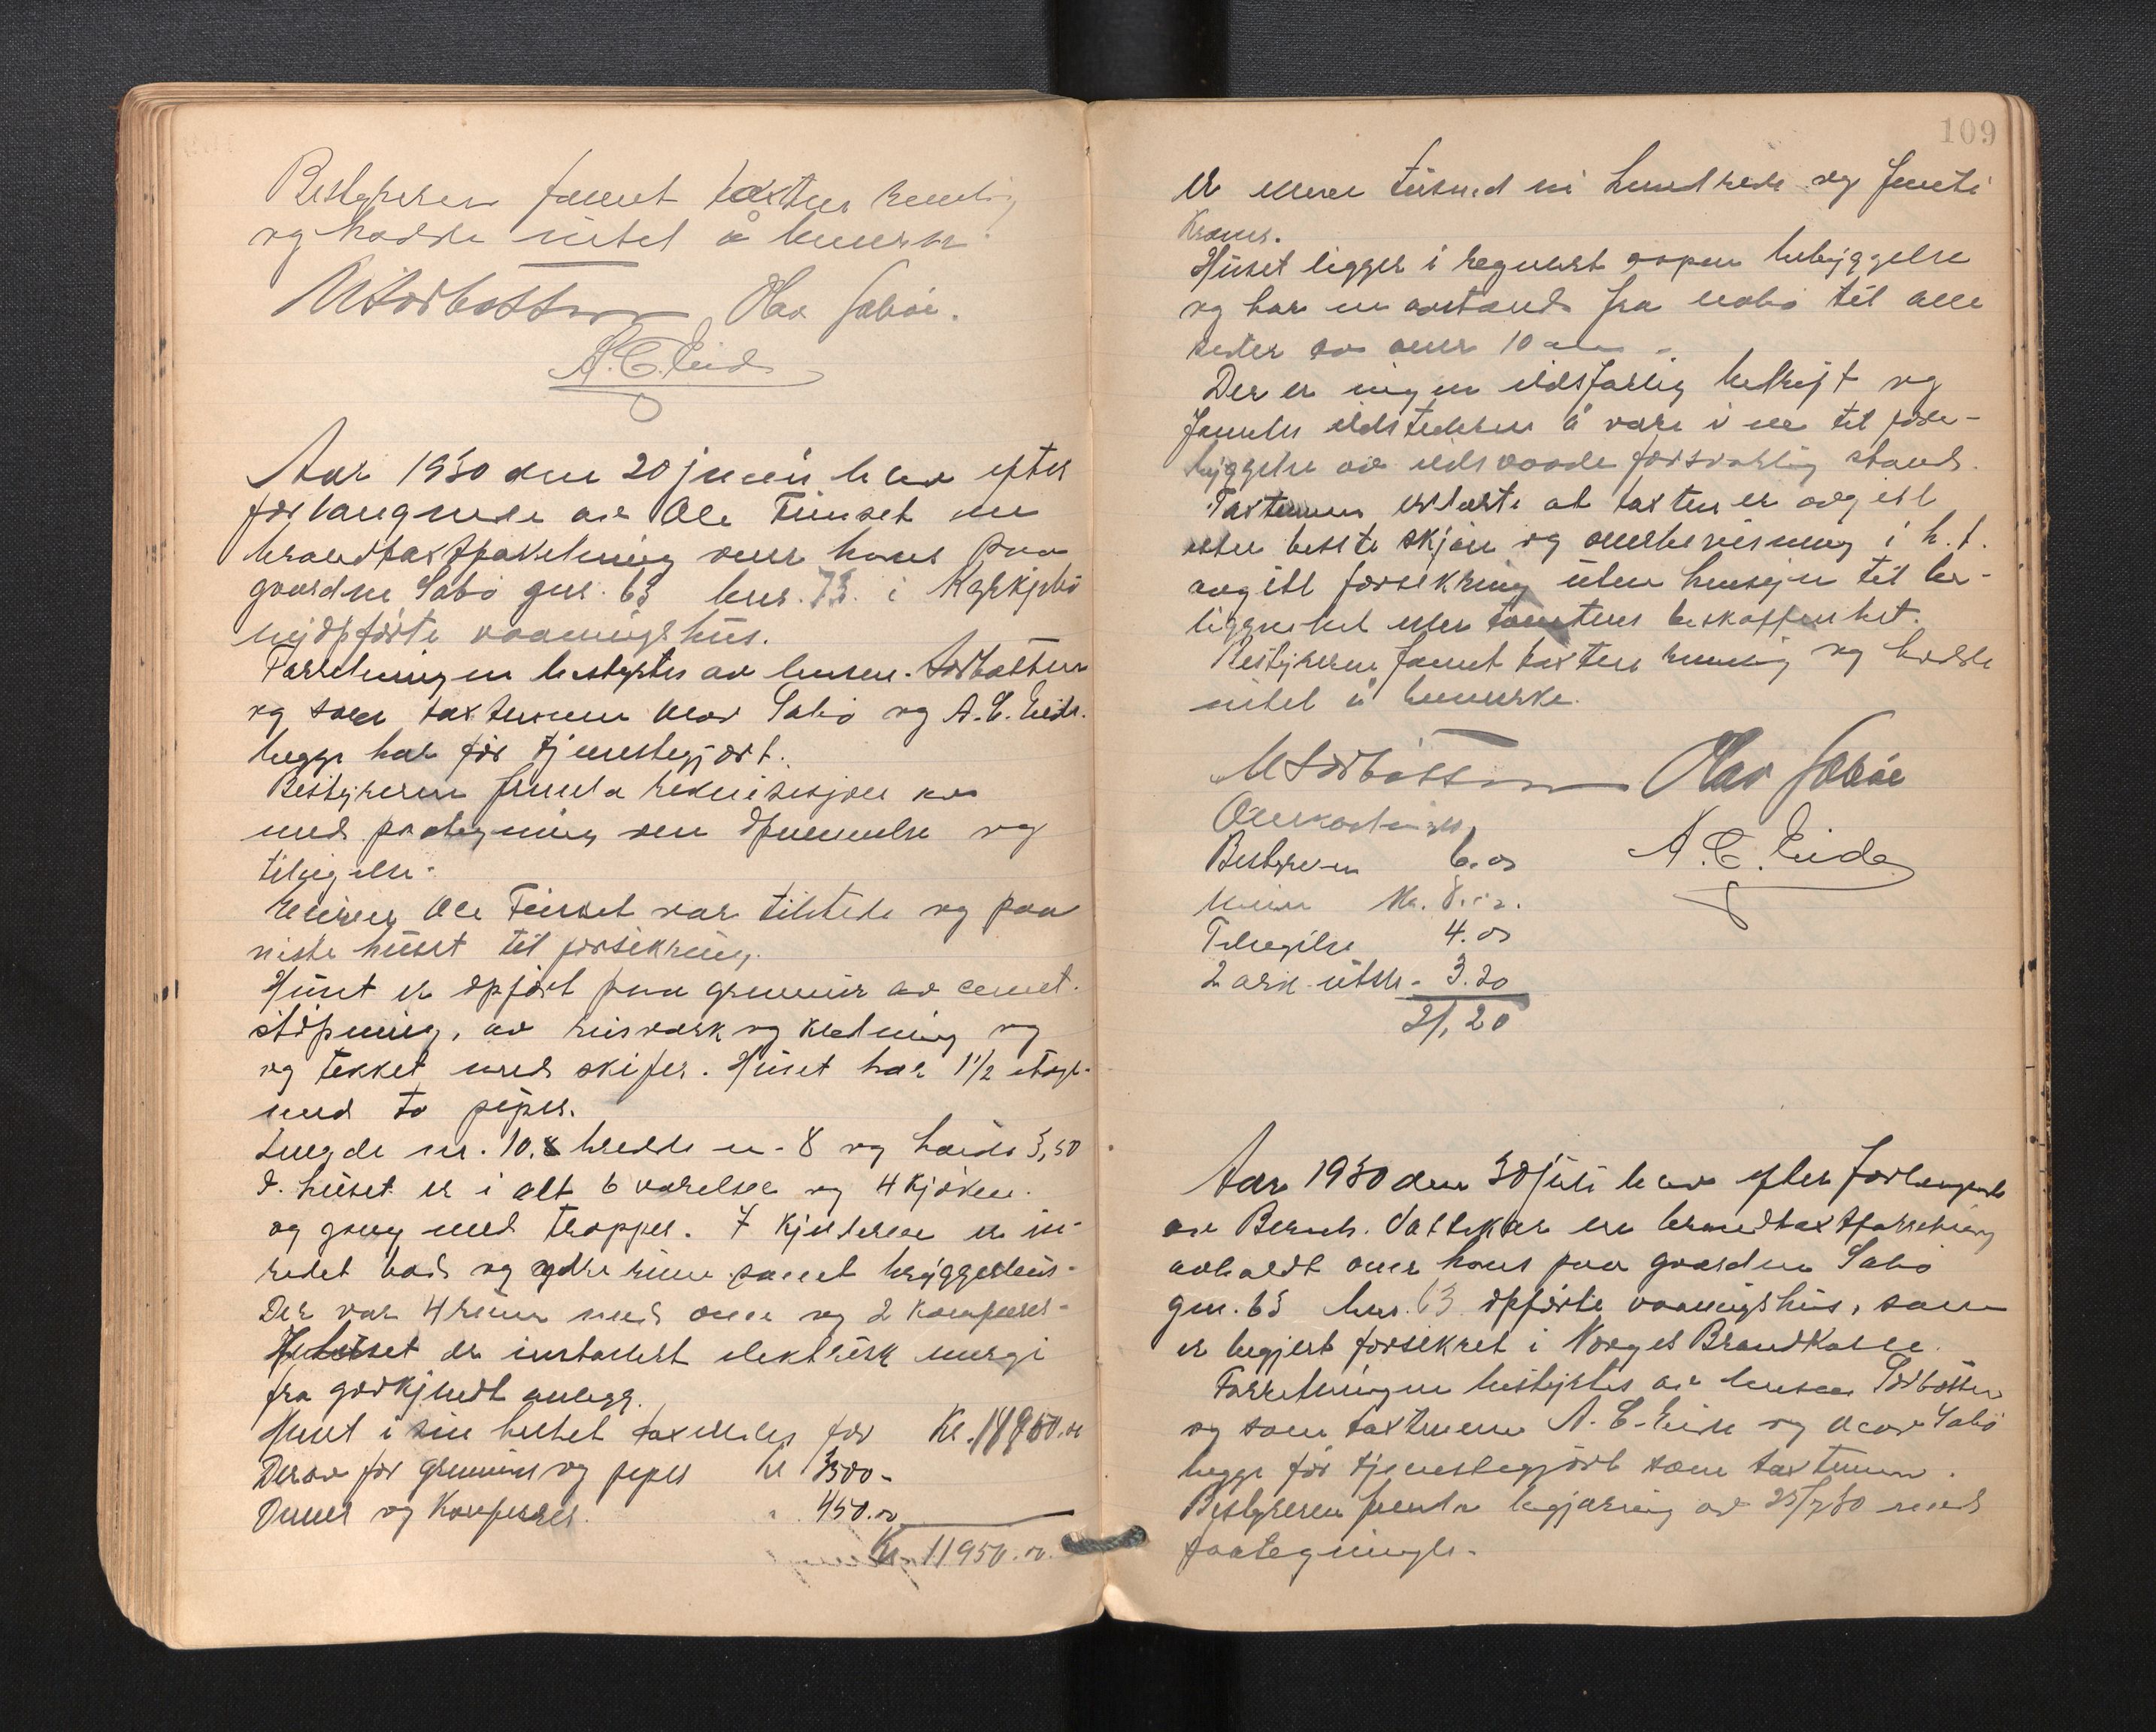 Bestyreren fannt taxten rimelig
og hadde intet å bemerke.
Olav Sabø.
A. C. Eide
Aar 1930 den 20 juni blev efter
forlangnede av Ole Finset en
brandtaxtforretning over hans paa
gaarden Sabø gnr. 63 bnr. 73. i
nyopførte vaaningshus.
Forretningen bestyrtes av lensm. Sørbotten
og som taxtmenn Olav Sabø og A. C. Eide.
begge har før tjenestegjort.
Bestyreren fremla rekvisisjon
med paategning om opnevnelse og
tilsigelse.
Eieren Ole Finset var tilstede og paa
viste huset til forsikring.
Huset er opført paa grunmur av cement-
støpning, av reisverk og kledning og
og tekket med skifer. Huset har 1 1/2 etage
med to piper.
Lengde m. 10.8 bredde m. 8 og høide 3,50
I huset er i alt 6 værelser og 4 kjøken.
og gang med trapper. I kjelderen er in-
redet bad og andre rum samt bryggerhus.
Der var 4 rum med ovn og 2 komfurer.
I huset er installert elektrisk energi
fra godkjendt anlegg.
Huset i sin helhet taxeredes for Kr. 11950.00
Derav for grunmur og piper Kr 3500-
Ovner og Komfurer. 450.00
Kr 11950.00.
109
er elleve tusend ni hundrede og femti
Kroner.
Huset ligger i regulert aapen bebyggelse
og har en avstand fra nabo til alle
sider av over 10 m.
Der er ingen ildsfarlig bedrift og
fantes ildstederne å være i en til fore-
byggelse av ildsvaade forsvarlig stand.
Taxtmenn erklærte at taxten er avgitt
etter beste skjøn og overbevisning i h. t.
avgitt forsikring uten hensyn til be-
liggenhet eller tomtens beskaffenhet.
Bestyreren fannt taxten rimelig og hadde
intet å bemerke.
Olav Sabøe
Omkostninger
Bestyreren 6.00 A. C. Eide
Menn Kr. 8.00.
Tilsigelse 4.00
2 ark utsk. 3.20
21,20
Aar 1930 den 30 juli blev efter forlangende
av Bernh. Vattekar en brandtaxtforretning
avholdt over hans paa gaarden Sabø
gnr. 63 bnr. 63 opførte vaaningshus, som
er begjert forsikret i Norges Brandkasse.
Forretningen bestyrtes av lensm. Sørbotten
og som taxtmenn A. C. Eide og Olav Sabø
begge før tjenestegjort som taxtmenn.
Bestyreren fremla begjæring av 25/7 30 med
paategninger.